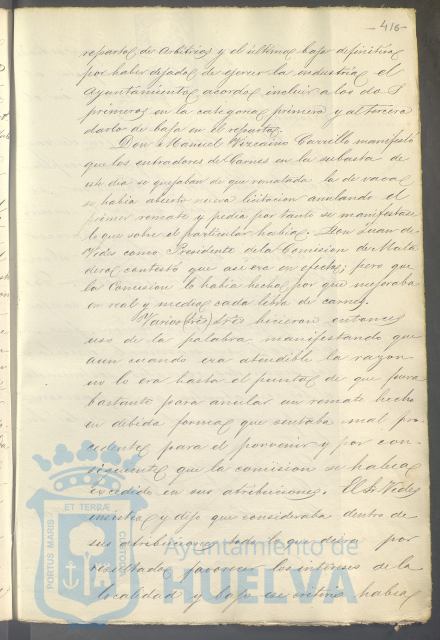 -416-
repartos de Arbitrios y el ultimo baja definitiva
por haber dejado de ejercer la industria el
Ayuntamiento acordó incluir a los dos
primeros en la categoria primera y al tercero
darlo de baja en el reparto.
Don Manuel Vizcaino Carrillo manifestó
que los entradores de Carnes en la subasta de
este dia se quejaban de que rematada la de vaca
se habia abierto nueva licitacion anulando el
primer remate y pedia por tanto se manifestase
lo que sobre el particular habia. Don Juan de
Vides como Presidente de la Comision de Mata
deros contestó que asi era en efecto; pero que
la Comision lo habia hecho por que mejoraba
en real y medio cada libra de carne.
Varios (tres) Sres hicieron entonces
uso de la palabra manifestando que
aun cuando era atendible la razon
no lo era hasta el punto de que fuera
bastante para anular un remate hecho
en debida forma que sentaba mal pre
cedente para el porvenir y por con
siguiente que la comision se habia
excedido en sus atribuciones. El Sr Vides
insistió y dijo que consideraba dentro de
sus atribuciones todo lo que diera por
resultado favorecer los intereses de la
localidad y bajo ese criterio habia
PORTUS MARIS
ET TERRÆ
CUSTODIA
Ayuntamiento de
HUELVA